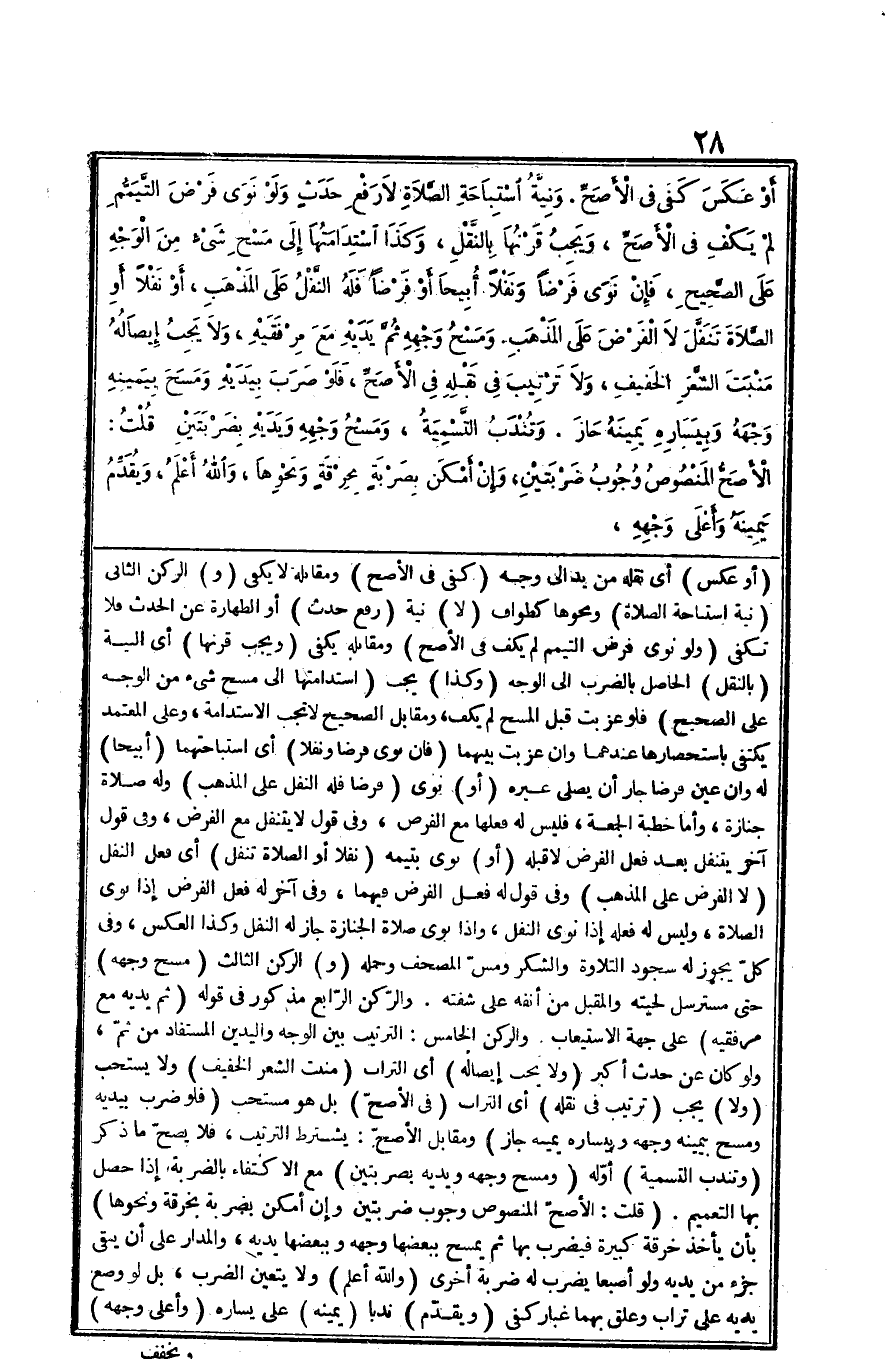 ٢٨
أَوْ عَكَسَ كَفَى فِى الْأَصَحِّ. وَنِيَّةُ اُسْتِبَاحَةِ الصَّلَاةِ لَارَفْعِ حَدَثٍ وَلَوْ نَوَى فَرْضَ التَّيَمُّمِ
لَمْ يَكْفِ فِى الْأَصَحِّ ، وَيَجِبُ قَرْنُهَا بِالنَّقْلِ ، وَكَذَا اسْتِدَامَتُهَا إِلَى مَسْحِ شَىْءٍ مِنَ الْوَجْهِ
عَلَى الصَّحِيحِ ، فَإِنْ نَوَى فَرْضاً وَنَفْلاً أُبِيحَا أَوْ فَرْضاً فَلَهُ النَّفْلُ عَلَى الْمَذْهَبِ ، أَوْ نَفْلاً أَوِ
الصَّلَاةَ تَنَفَّلَ لاَ الْفَرْضَ عَلَى الْمَذْهَبِ. وَمَسْحُ وَجْهِهِ ثُمَّ يَدَيْهِ مَعَ مِرْفَقَيْهِ ، وَلاَ يَجِبُ إِيصَالُهُ
مَنْبَتَ الشَّعْرِ الْخَفِيفِ ، وَلاَ تَرْتِيبَ فِى نَقْلِهِ فِى الْأَصَحِّ ، فَلَوْ ضَرَبَ بِيَدَيْهِ وَمَسَحَ بِيَمِينِهِ
وَجْهَهُ وَبِيَسَارِهِ يَمِينَهُ جَازَ . وَتُنْدَبُ التَّسْمِيَةُ ، وَمَسْحُ وَجْهِهِ وَيَدَيْهِ بِضَرْبَتَيْنِ قُلْتُ :
الْأَصَحُّ الْمَنْصُوصُ وُجُوبُ ضَرْبَتَيْنِ، وَإِنْ أَمْكَنَ بِضَرْبَةٍ بِخِرْقَةٍ وَنَحْوِهَا ، وَاللهُ أَعْلَمُ ، وَيُقَدِّمُ
يَمِينَهُ وَأَعْلَى وَجْهِهِ ،
(أو عكس) أى نقله من يد الى وجه (كفى فى الأصح) ومقابله لا يكفى (و) الركن الثانى
(نية استباحة الصلاة) ونحوها كطواف (لا) نية (رفع حدث) أو الطهارة عن الحدث فلا
تكفى (ولو نوى فرض التيمم لم يكف فى الأصح) ومقابله يكفى (ويجب قرنها) أى النية
(بالنقل) الحاصل بالضرب الى الوجه (وكذا) يجب (استدامتها الى مسح شىء من الوجه
على الصحيح) فلو عزبت قبل المسح لم يكف، ومقابل الصحيح لاتجب الاستدامة ، وعلى المعتمد
يكتفى باستحضارها عندهما وان عزبت بينهما (فان نوى فرضا ونفلا) أى استباحتهما (أبيحا)
له وان عين فرضا جاز أن يصلى غيره (أو) نوى (فرضا فله النفل على المذهب) وله صلاة
جنازة ، وأما خطبة الجمعة ، فليس له فعلها مع الفرض ، وفى قول لايتنفل مع الفرض ، وفى قول
آخر يتنفل بعد فعل الفرض لاقبله (أو) نوى بتيمه (نفلا أو الصلاة تنفل) أى فعل النفل
(لا الفرض على المذهب) وفى قول له فعل الفرض فيهما ، وفى آخر له فعل الفرض إذا نوى
الصلاة ، وليس له فعله إذا نوى النفل ، واذا نوى صلاة الجنازة جاز له النفل وكذا العكس ، وفى
كلّ يجوز له سجود التلاوة والشكر ومسّ المصحف وحمله (و) الركن الثالث (مسح وجهه)
حتى مسترسل لحيته والمقبل من أنفه على شفته . والرّكن الرّابع مذكور فى قوله (ثم يديه مع
مرفقيه) على جهة الاستيعاب . والركن الخامس : الترتيب بين الوجه واليدين المستفاد من ثمّ ،
ولو كان عن حدث أكبر (ولا يجب إيصاله) أى التراب (منبت الشعر الخفيف) ولا يستحب
(ولا) يجب (ترتيب فى نقله) أى التراب (فى الأصحّ) بل هو مستحب (فلو ضرب بيديه
ومسح بيمينه وجهه وبيساره يمينه جاز) ومقابل الأصحّ : يشترط الترتيب ، فلا يصحّ ما ذكر
(وتندب التسمية) أوّله (ومسح وجهه ويديه بضربتين) مع الاكتفاء بالضربة، إذا حصل
بها التعميم . (قلت : الأصحّ المنصوص وجوب ضربتين وإن أمكن بضربة بخرقة ونحوها)
بأن يأخذ خرقة كبيرة فيضرب بها ثم يمسح ببعضها وجهه وببعضها يديه ، والمدار على أن يبقى
جزء من يديه ولو أصبعا يضرب له ضربة أخرى (والله أعلم) ولا يتعين الضرب ، بل لو وضع
يديه على تراب وعلق بهما غبار كفى (ويقدّم) ندبا (يمينه) على يساره (وأعلى وجهه)
ويخفف